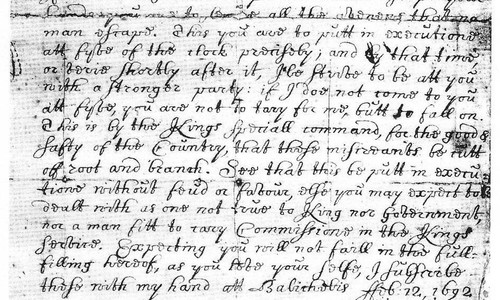 you are to secure all the avenues that no
man escape. This you are to putt in executione
att fyve of the clock precisely; and by that time
or verie shortly after it, I'le strive to be att you
with a stronger party: if I doe not come to you
att fyve, you are not to tary for me, butt to fall on.
This is by the Kings speciall command, for the good &
safty of the Country, that these miscreants be cutt
off root and branch. See that this be putt in execu
tione without feud or favour, else you may expect to be
dealt with as one not true to King nor Government,
nor a man fitt to cary Commissione in the Kings
service. Expecting you will not faill in the full-
filling hereof, as you love your selfe, I subscribe
these with my hand att Balicholis Feb. 12, 1692